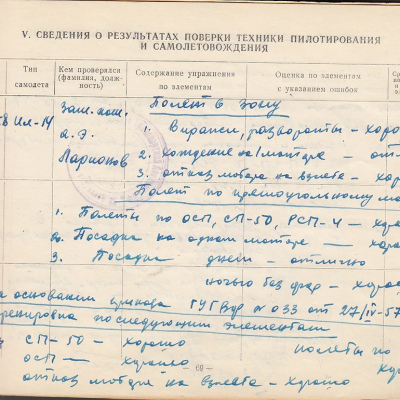 V. СВЕДЕНИЯ О РЕЗУЛЬТАТАХ ПОВЕРКИ ТЕХНИКИ ПИЛОТИРОВАНИЯ
И САМОЛЕТОВОЖДЕНИЯ
Тип самодета
Кем проверялся (фамилия, долж-
ность)
Содержание упражнения
по элементам
Оценка по элементам
с указанием ошибок
Полет в зону
Ил-14
Зам. ком.
а. э.
Ларионов
1. Виражи, развороты – хоро
2. хождение на 1 моторе – отл
3. отказ мотора на взлете – хор
Полет по прямоугольному ма
1. Полеты по ОСП, СП-50, РСП-4 – хоро
2. Посадка на одном моторе – хоро
3. Посадка днем – отлично
ночью без фар – хорош
на основании приказа ГУГВФ № 033 от 27/IV-57
тренировка последующим элементам
СП-50 – хорошо
полеты по
ОСП – хорошо
отказ мотора на взлете – хорошо
– 69 –